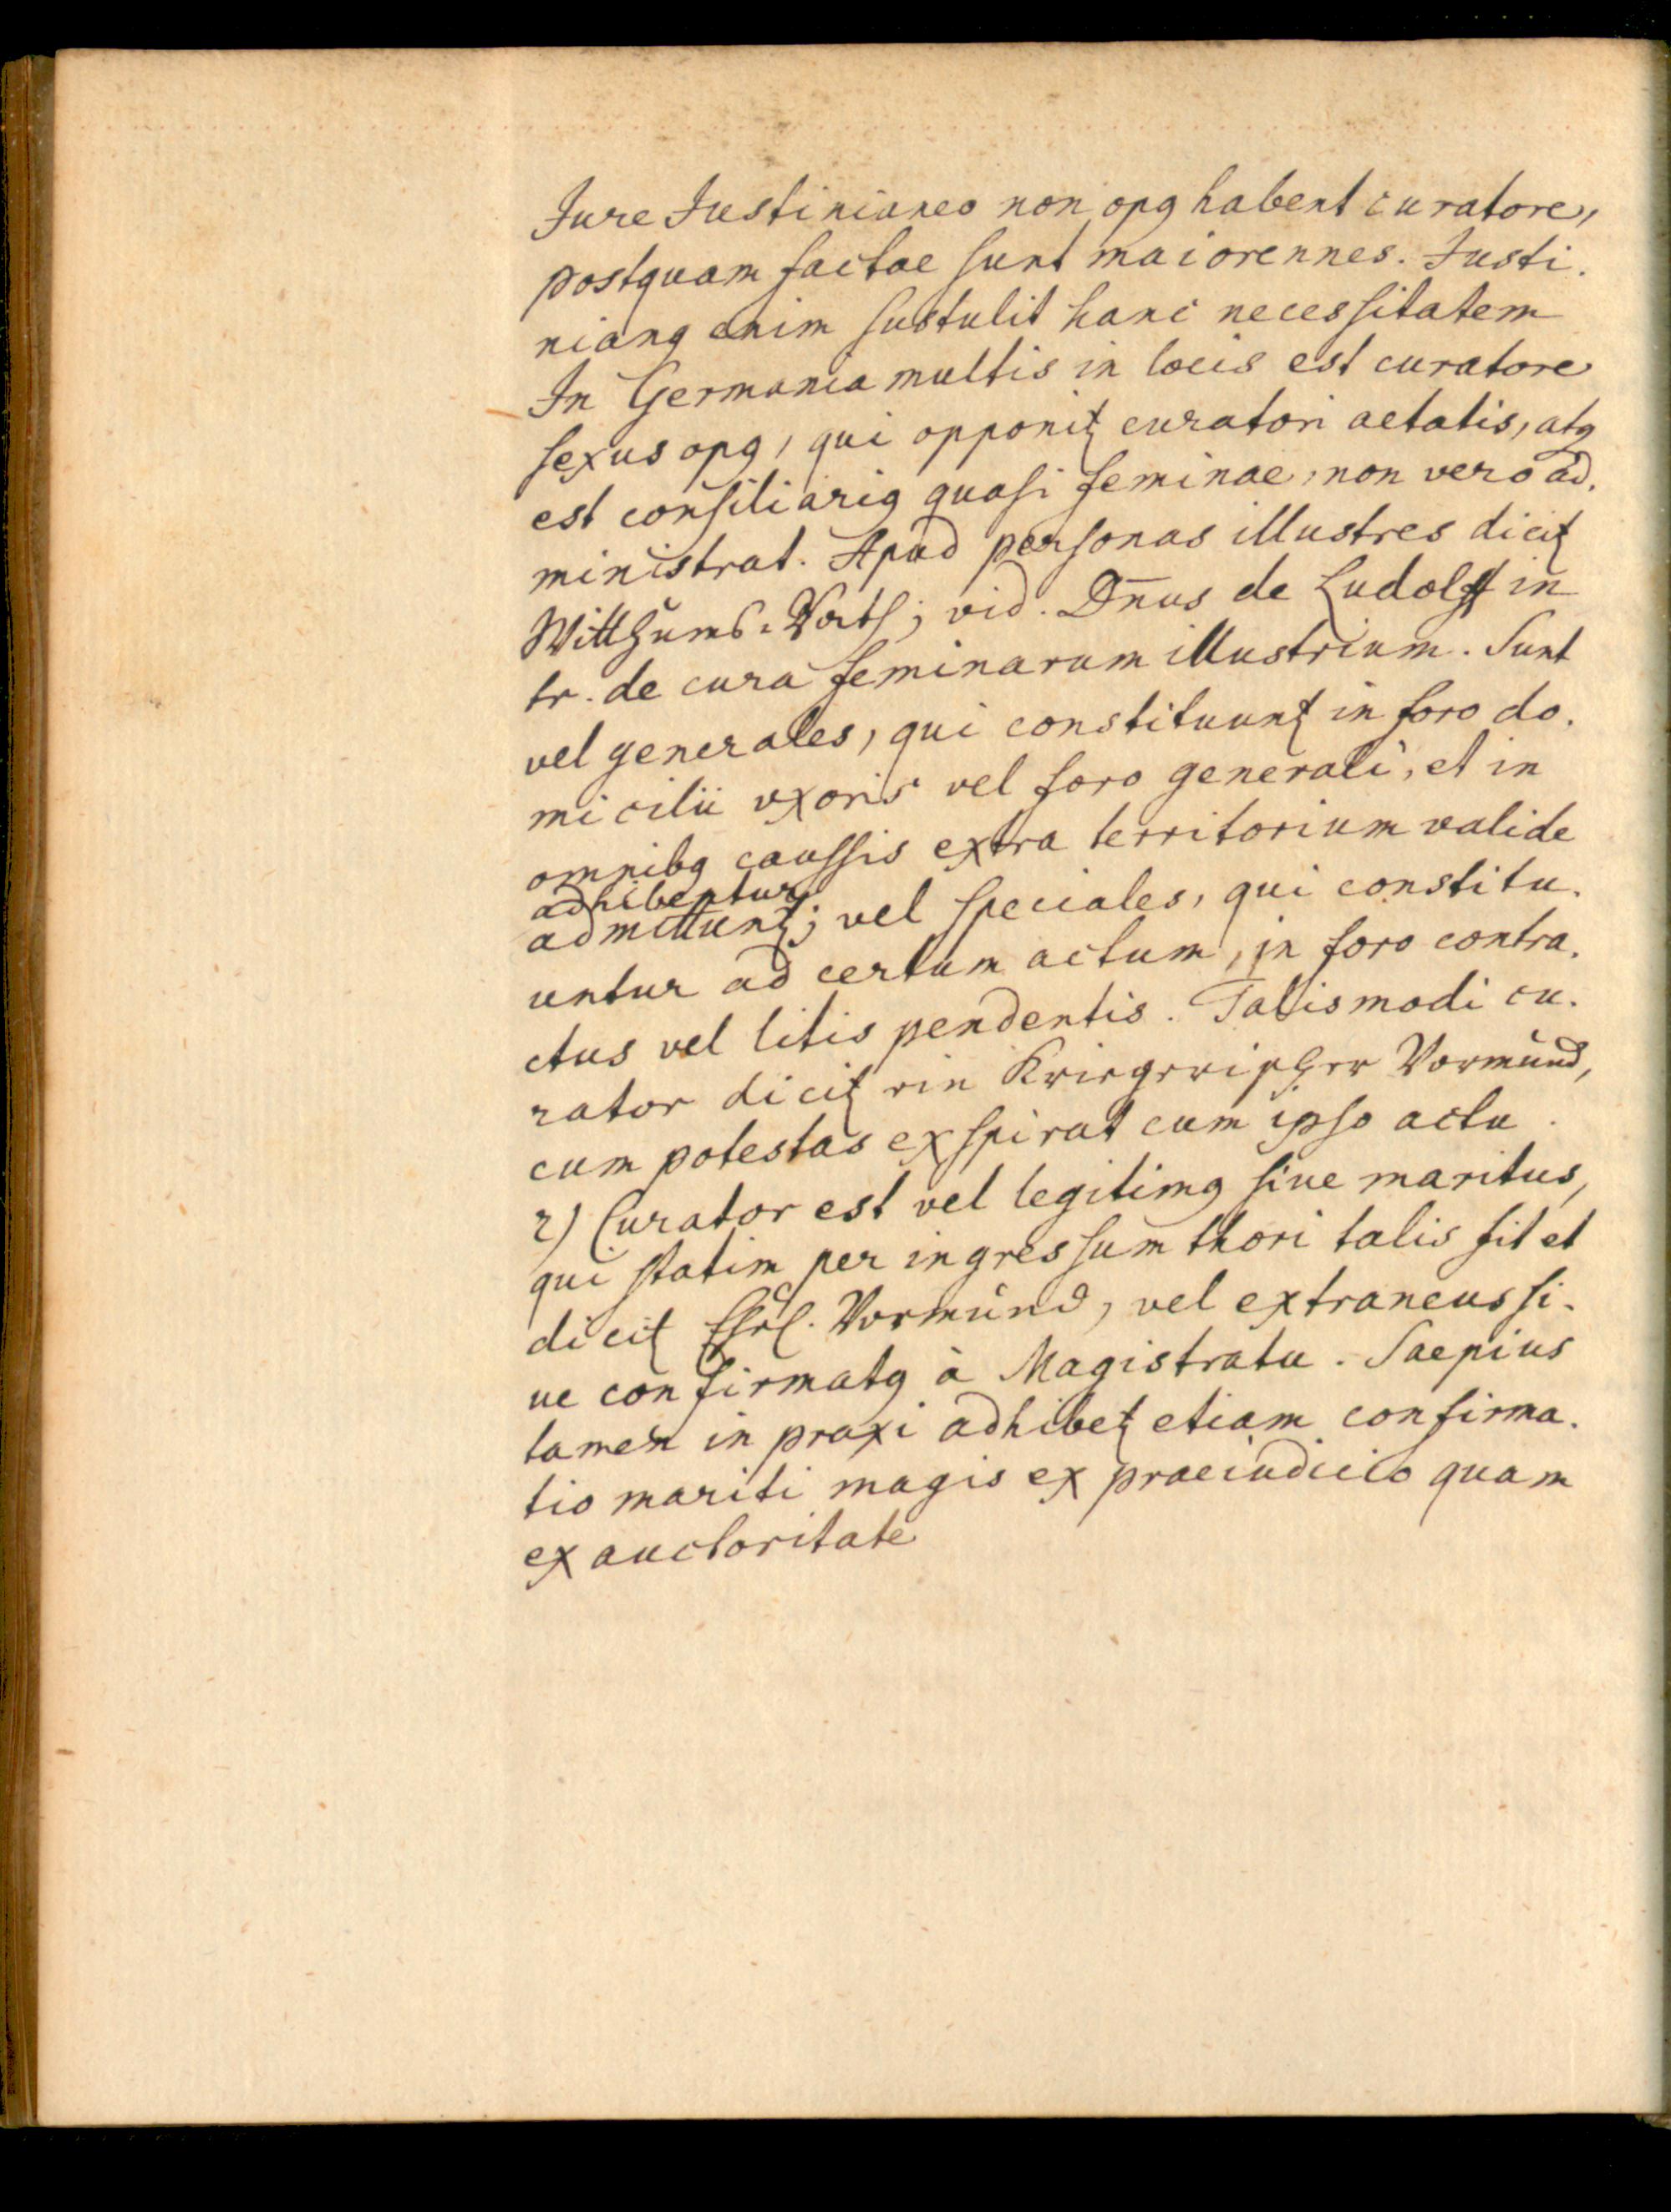 Jure Justinianeo non opꝯ habent curatore,
postquam factae sunt maiorennes. Justi.
nianꝯ enim sustulit hanc necessitatem
In Germania multis in locis est curatore
sexus opꝯ, qui opponitꝛ curatori aetatis, atꝗ
est consiliariꝯ quasi feminae, non vero ad.
ministrat. Apud personas illustres dicitꝛ
Witthumbs-Vats; vid. Dn̄us de Ludolff in
tr. de cura feminarum illustrium. Sunt
vel generales, qui constituuntꝛ in foro do.
micilii vxoris vel foro generali, et in
omnibꝯ caussis extra territorium valide
adhibentur
admittuntꝛ; vel speciales, qui constitu.
untur ad certum actum, in foro contra.
ctus vel litis pendentis. Talismodi cu.
rator dicitꝛ ein Kriegerischer Vormund,
cum potestas exspirat cum ipso actu.
2) Curator est vel legitimꝯ siue maritus,
qui statim per ingressum thori talis fit et
dicitꝛ Ehel. Vormund, vel extraneus si.
ue confirmatꝯ à Magistratu. Saepius
tamen in praxi adhibetꝛ etiam confirma.
tio mariti magis ex praeiudicio quam
ex auctoritate